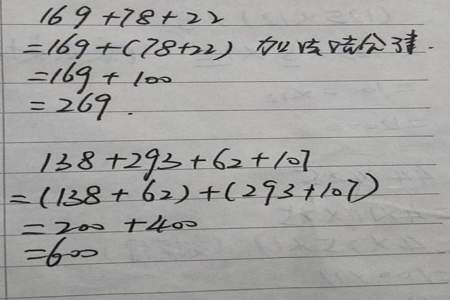 169+78+22
=169+(78+22) 加法结合律.
=169+100
=269.
138+293+62+107
=(138+62)+(293+107)
=200+400
=600